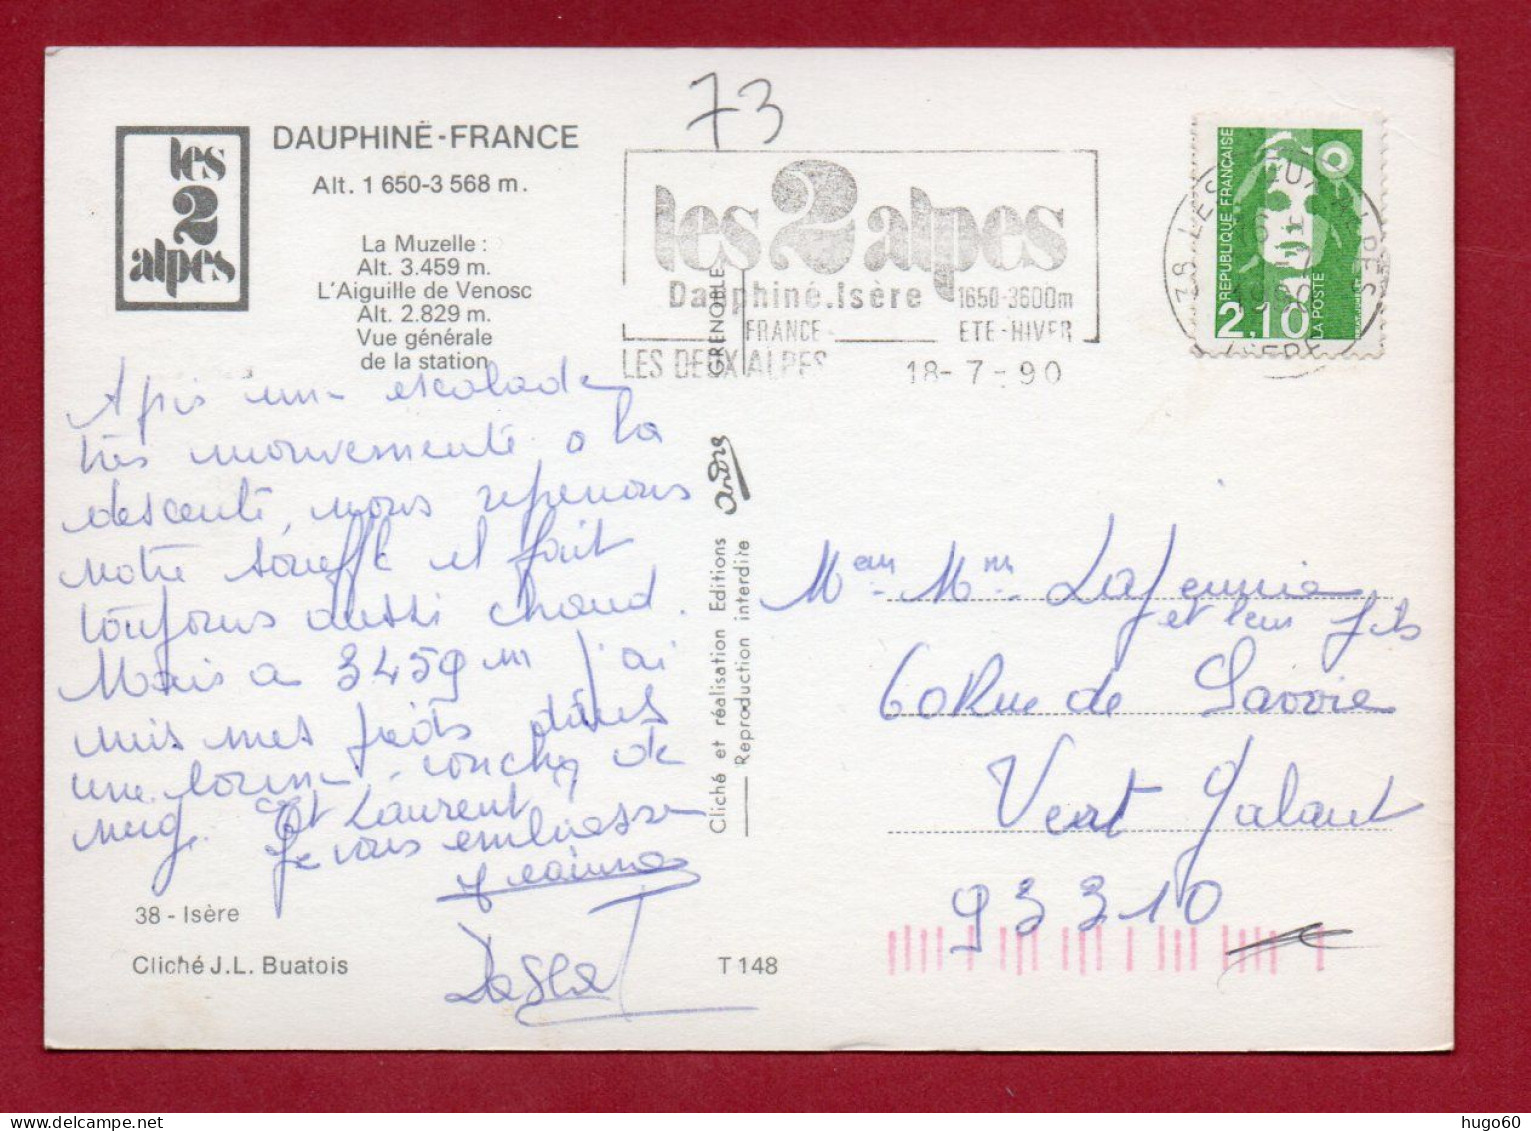 73
les
2
alpes
DAUPHINÉ-FRANCE
Alt. 1 650-3 568 m.
La Muzelle :
Alt. 3.459 m.
L'Aiguille de Venosc
Alt. 2.829 m.
Vue générale
de la station
les 2 alpes
Dauphiné.Isère 1650-3600m
FRANCE ETE-HIVER
LES DEUX ALPES 18-7-90
REPUBLIQUE FRANÇAISE
2,10
LA POSTE
38 LES DEUX ALPES
ISERE
Apis une escalade
très mouvementé a la
descente, nous reprenons
notre souffle il fait
toujours aussi chaud.
Mais a 3459 m j'ai
mis mes pieds dans
une bonne couche de
neige. Et Laurent
je vous embrasse
GRENOBLE
andre
Cliché et réalisation Editions
Reproduction interdite
Mr Mme
et leur fils
60 Rue de Savoie
Vert Galant
93310
38 - Isère
Cliché J.L. Buatois
T 148
hugo60